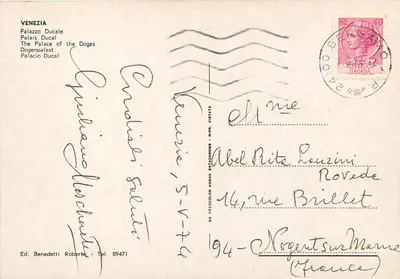 VENEZIA
Palazzo Ducale
Palais Ducal
The Palace of the Doges
Dogenpalast
Palacio Ducal
Venezia, 5-V-74
Cordiali saluti
Giuliano
Ed. Benedetti Roberto - Tel 89471
24100 BERGAMO
Mme
Abel Rita Louzini
Rovede
14, rue Brillet
94-Nogent sur Marne
(France)